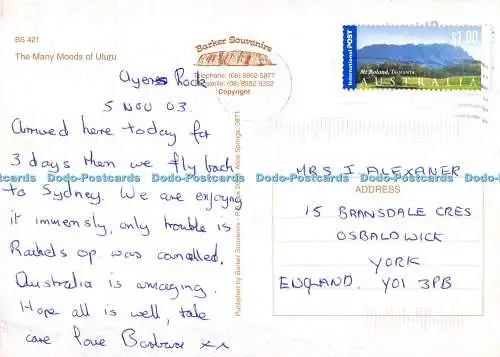 BS 421
The Many Moods of Uluru
Barker Souvenirs
Telephone: (08) 8952 5377
Facsimile: (08) 8952 9352
Copyright
Ayers Rock
5 NOV 03.
Arrived here today for
3 days then we fly back
to Sydney. We are enjoying
it immensly, only trouble is
Rachels op. was cancelled.
Australia is amazing.
Hope all is well, take
care love Barbara xx
Published by Barker Souvenirs - Alice Springs, 0871
International POST
$1.00
Mt Roland, Tasmania
AUSTRALIA
MRS J ALEXANER
ADDRESS
15 BRANSDALE CRES
OSBALDWICK
YORK
ENGLAND. YO1 3PB
Dodo-Postcards Dodo-Postcards Dodo-Postcards Dodo-Postcards Dodo-Postcards Dodo-Postcards